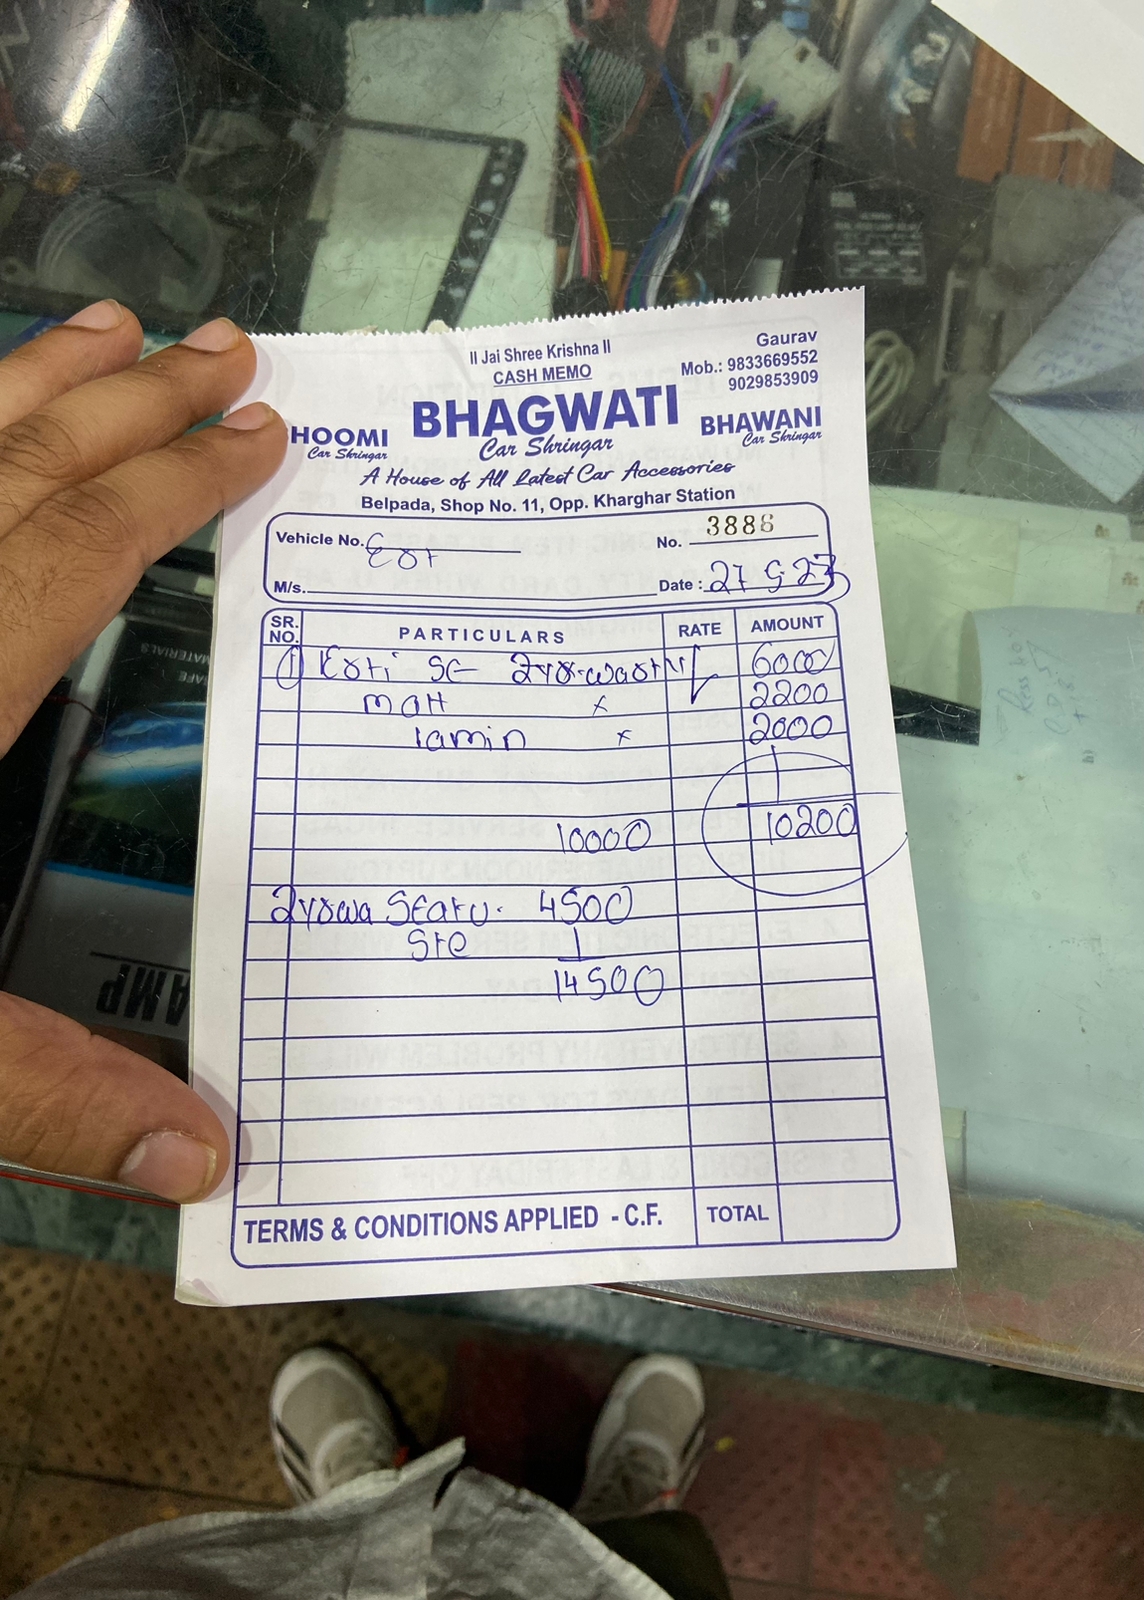 II Jai Shree Krishna II
CASH MEMO
Gaurav
Mob.: 9833669552
9029853909
HOOMI
Car Shringar
BHAGWATI
Car Shringar
BHAWANI
Car Shringar
A House of All Latest Car Accessories
Belpada, Shop No. 11, Opp. Kharghar Station
Vehicle No.
No. 3886
M/s.
Date : 27 9 23
SR. NO. PARTICULARS RATE AMOUNT
1 6000
matt x 2200
lamin x 2000
10000 10200
4500
14500
TERMS & CONDITIONS APPLIED - C.F. TOTAL